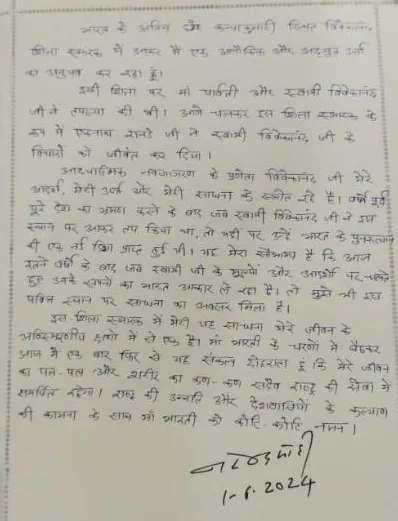 भारत के अंतिम छोर कन्याकुमारी स्थित विवेकानंद
शिला स्मारक में आकर मैं एक अलौकिक और अद्भुत ऊर्जा
का अनुभव कर रहा हूं।
इसी शिला पर मां पार्वती और स्वामी विवेकानंद
जी ने तपस्या की थी। आगे चलकर इस शिला स्मारक के
रूप में एकनाथ रानडे जी ने स्वामी विवेकानंद जी के
विचारों को जीवंत कर दिया।
आध्यात्मिक नवजागरण के प्रणेता विवेकानंद जी मेरे
आदर्श, मेरी ऊर्जा और मेरी साधना के स्त्रोत रहे हैं। वर्षों पूर्व
पूरे देश का भ्रमण करने के बाद जब स्वामी विवेकानंद जी ने इस
स्थान पर आकर तप किया था, तो यहीं पर उन्हें भारत के पुनरुत्थान
की एक नई दिशा प्राप्त हुई थी। यह मेरा सौभाग्य है कि आज
इतने वर्षों के बाद जब स्वामी जी के मूल्यों और आदर्शों पर चलते
हुए उनके सपनों का भारत आकार ले रहा है। तो मुझे भी इस
पवित्र स्थान पर साधना का अवसर मिला है।
इस शिला स्मारक में मेरी यह साधना मेरे जीवन के
अविस्मरणीय क्षणों में से एक है। मां भारती के चरणों में बैठकर
आज मैं एक बार फिर से यह संकल्प दोहराता हूं कि मेरे जीवन
का पल-पल और शरीर का कण-कण सदैव राष्ट्र की सेवा में
समर्पित रहेगा। राष्ट्र की उन्नति और देशवासियों के कल्याण
की कामना के साथ मां भारती को कोटि-कोटि नमन।
नरेन्द्र मोदी
1-6-2024